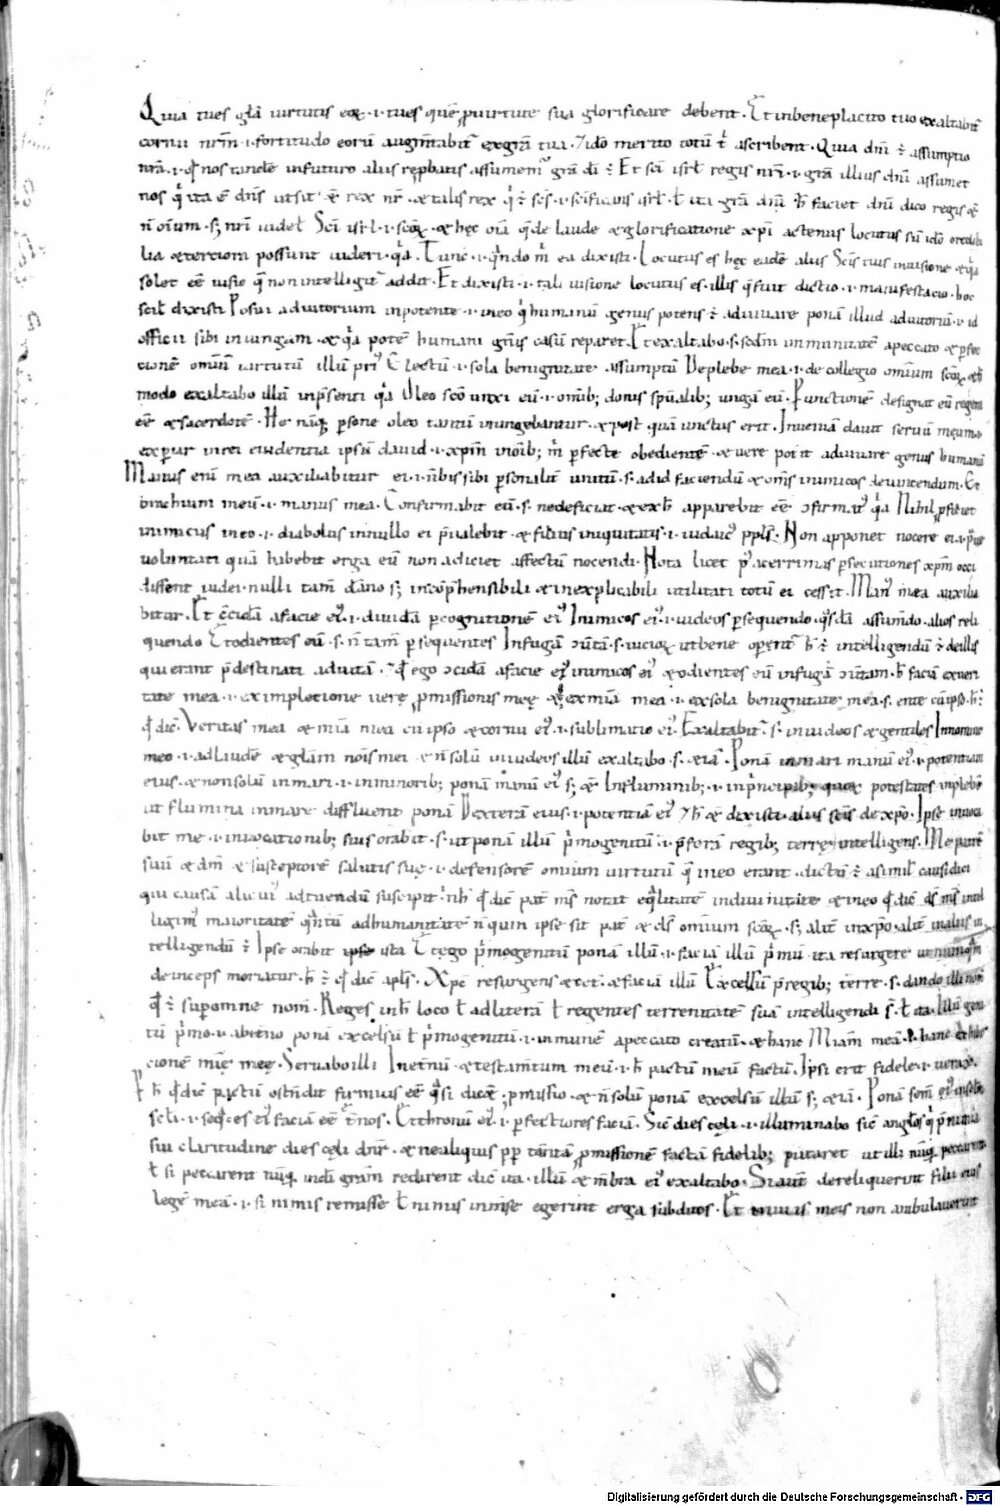 Quia tu es gl̄a uirtutis eoꝝ .i. tu es quē ꝓ uirtute sua glorificare debent. Et in beneplacito tuo exaltabit̄
cornu nr̄m .i. fortitudo eorū augm̄tabit̄ ex gr̄a tua. Ideo merito totū t̄ ascribent. Quia dn̄i ē assumptio
nr̄a .i. qđ nos tandē in futuro alus reprobatis assumem̄ gr̄a dī ē Et sc̄i isrl̄ regis nr̄i .i. gr̄a illius dn̄i assumet
nos qͥ ita ē dn̄s ut sit ē rex nr̄ & talis rex qͥ ē sc̄s .i. sc̄ificans isrl̄ ł ita gr̄a dn̄i h̄ faciet dn̄i dico regis &
n̄ oīum s; nr̄i uidel̄ Sc̄i isrl̄ .i. scōꝝ & hęc oīa q̄ de laude & glorificatione xp̄i actenus locutus sū ido
lia & certiora possunt uideri qͥa Tunc .i. qn̄do m̄ ea dixisti. Locutus es hęc eadē aliis Sc̄is tuis in uisione & qͥa
solet eē uisio q̄ non intelligit̄ addit. Et dixisti .i. tali uisione locutus es illis q̄ fuit dictio .i. manifestacio hoc
scil̄ dixisti Posui adiutorium in potente .i. in eo qͥ humanū genus potens ē adiuuare ponā illud adiutoriū .i. id
officii sibi iniungam & qͥa potē humani gn̄is casū reparet. Et exaltabo .s. sedm in munitate a peccato & ꝑfec
tionē omniū uirtutū illū pri Electū .i. sola benignitate assumptū De plebe mea .i. de collegio omium scōꝝ &
modo exaltabo illū in p̄senti qͥa Oleo scō unxi eū .i. om̄ib; donis sp̄ualib; ungā eū. Punctionē designat eū regem
eē & sacerdotē. He nāq̄ ꝑsone oleo tantū inungebantur & post quā unctus erit. Inueniā dauit seruū meum
ex parur in rei euidentia ipsū dauid .i. xpm̄ in oīb; m̄ ꝑfecte obedientē & uere potit adiuuare genus humanū
Manus enī mea auxiliabitur ei .i. n̄bis sibi ꝑsonalit̄ unitū .s. ad id faciendū & om̄s inimicos deuincendum. Et
brachium meū .i. manus mea Confirmabit eū .s. ne deficiat & ex h̄ apparebit eē confirmat qͥa Nihil ꝓficiet
inimicus in eo .i. diabolus in nullo ei p̄ualebit & filius iniquitatis .i. iudaic ppl̄s. Non apponet nocere ei
uoluntati quā habebit erga eū non adiciet affectū nocendi. Nota licet ꝑ acerrimas ꝑsecutiones xpm̄ occi
dissent iudei nulli tam̄ dāno s; incōp̄hensibili & inexplicabili utilitati totū ei cessit. Man mea auxilia
bitur. Et cōcidā a facie eī .i. diuidā p̄cognitionē eī Inimicos eī .i. iudeos ꝑsequendo qͦsdā assumdo alios reli
quendo Et odientes eū .s. n̄ tam̄ ꝑsequentes In fugā ɔuertā .s. ut bene operent̄ h̄ ē intelligendū ē de illis
qui erant p̄destinati ad uitā. qđ ego ɔcidā a facie eī inimicos eī & odientes eū in fugā ɔuertam h̄ faciā ex ueri
tate mea .i. ex impletione uere ꝓmissionis meę & ex mīa mea .i. ex sola benignitate mea .s. ente cū ipso h̄
qđ dic̄. Veritas mea & mīa mea cū ipso & cornu eī .i. sublimatio eī Exaltabit̄ .s. in iudeos & gentiles In nomine
meo .i. ad laudē & gl̄am nōis mei & n̄ solū in iudeis illū exaltabo .s. etiā. Ponā in mari manū eī .i. potentiam
eius & non solū in mari .i. in minorib; ponā manū eī s; & In fluminib; .i. in p̄ncipib; quoꝝ potestates in plebē
ut flumina in mare diffluent ponā Dexterā eius .i. potentiā eī & h̄ & dixisti alus sc̄is de xp̄o. Ipse inuoca
bit me .i. inuocationib; suis orabit .s. ut ponā illū pͥmogenitū .i. p̄ferā regib; terre intelligens. Me patrē
suū & dm̄ & susceptorē salutis suę .i. defensorē omium uirtutū q̄ in eo erant dictū ē a simil̄ causidici
qui causā alicuī ad tuendū suscipit. In h̄ qđ dic̄ pat m̄s notat eqͣlitatē in diuinitate & in eo qđ dic̄ ds̄ m̄s intel
ligim̄ maioritatē qn̄tū ad humanitatē n̄ quin ipse sit pat & ds̄ omium scōꝝ s; alit̄ in xp̄o alit̄ in aliis in
telligendū ē Ipse orabit ista Et ego pͥmogenitū ponā illū .i. faciā illū pͥmū ita resurgere ut nunqͣm
deinceps moriatur h̄ ē qđ dic̄ apl̄s. Xp̄c resurgens & cet. & faciā illū Excelsū p̄ regib; terre .s. dando illi nom̄
qđ ē sup omne nom̄. Reges in h̄ loco ł ad literā ł regentes terrenitatē suā intelligendi s̄ ł ita. Illū geni
tū pͥmo .i. ab eterno ponā excelsū ł pͥmogenitū .i. in munē a peccato creatū & hanc Miam̄ meā .i. hanc exhibi
cionē mīę meę. Seruabo illi In etn̄ū & testam̄tum meū .i. h̄ pactū meū factū. Ipsi erit fidele .i. uerax.
P h̄ qđ dic̄ pactū ostn̄dit firmius eē qͣsi dicēt ꝓmissio & n̄ solū ponā excelsū illū s; etiā. Ponā sem̄ eī in sclā
scl̄i .i. seq̄ces eī faciā eē et̄nos. Et thronū eī .i. ꝑfectiores faciā. Sic̄ dies cęli .i. illuminabo sic̄ angl̄os qͥ p̄ nimia
sui claritudine dies cęli dn̄r & ne aliquis ꝓp̄ tantā ꝓmissionē factā fidelib; putaret ut illi nūq̄ peccarent
ł si peccarent nūq̄ in dī gram̄ redirent dic̄ ita. illū & m̄bra eī exaltabo. Si aut̄ dereliquerint filii eius
legē meā .i. si nimis remisse ł nimis in mise egerint erga subditos. Et in uiis meis non ambulauerint